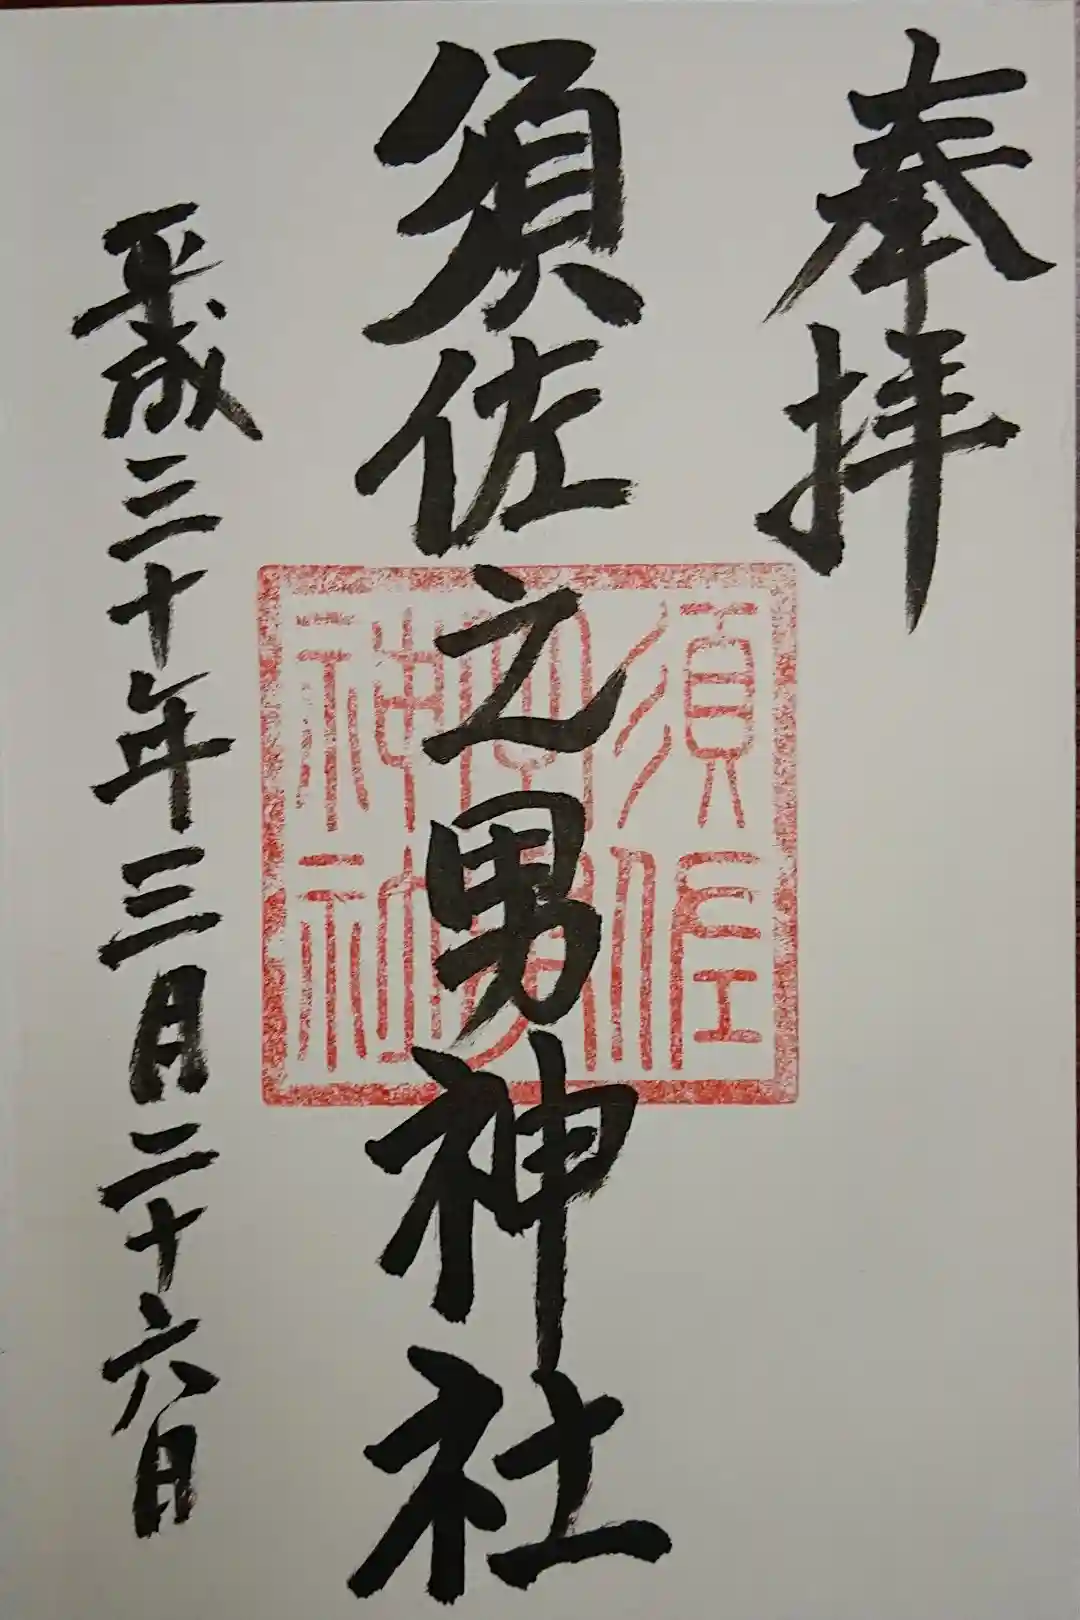 奉拝
須佐之男神社
平成三十年三月二十六日
須佐
神社